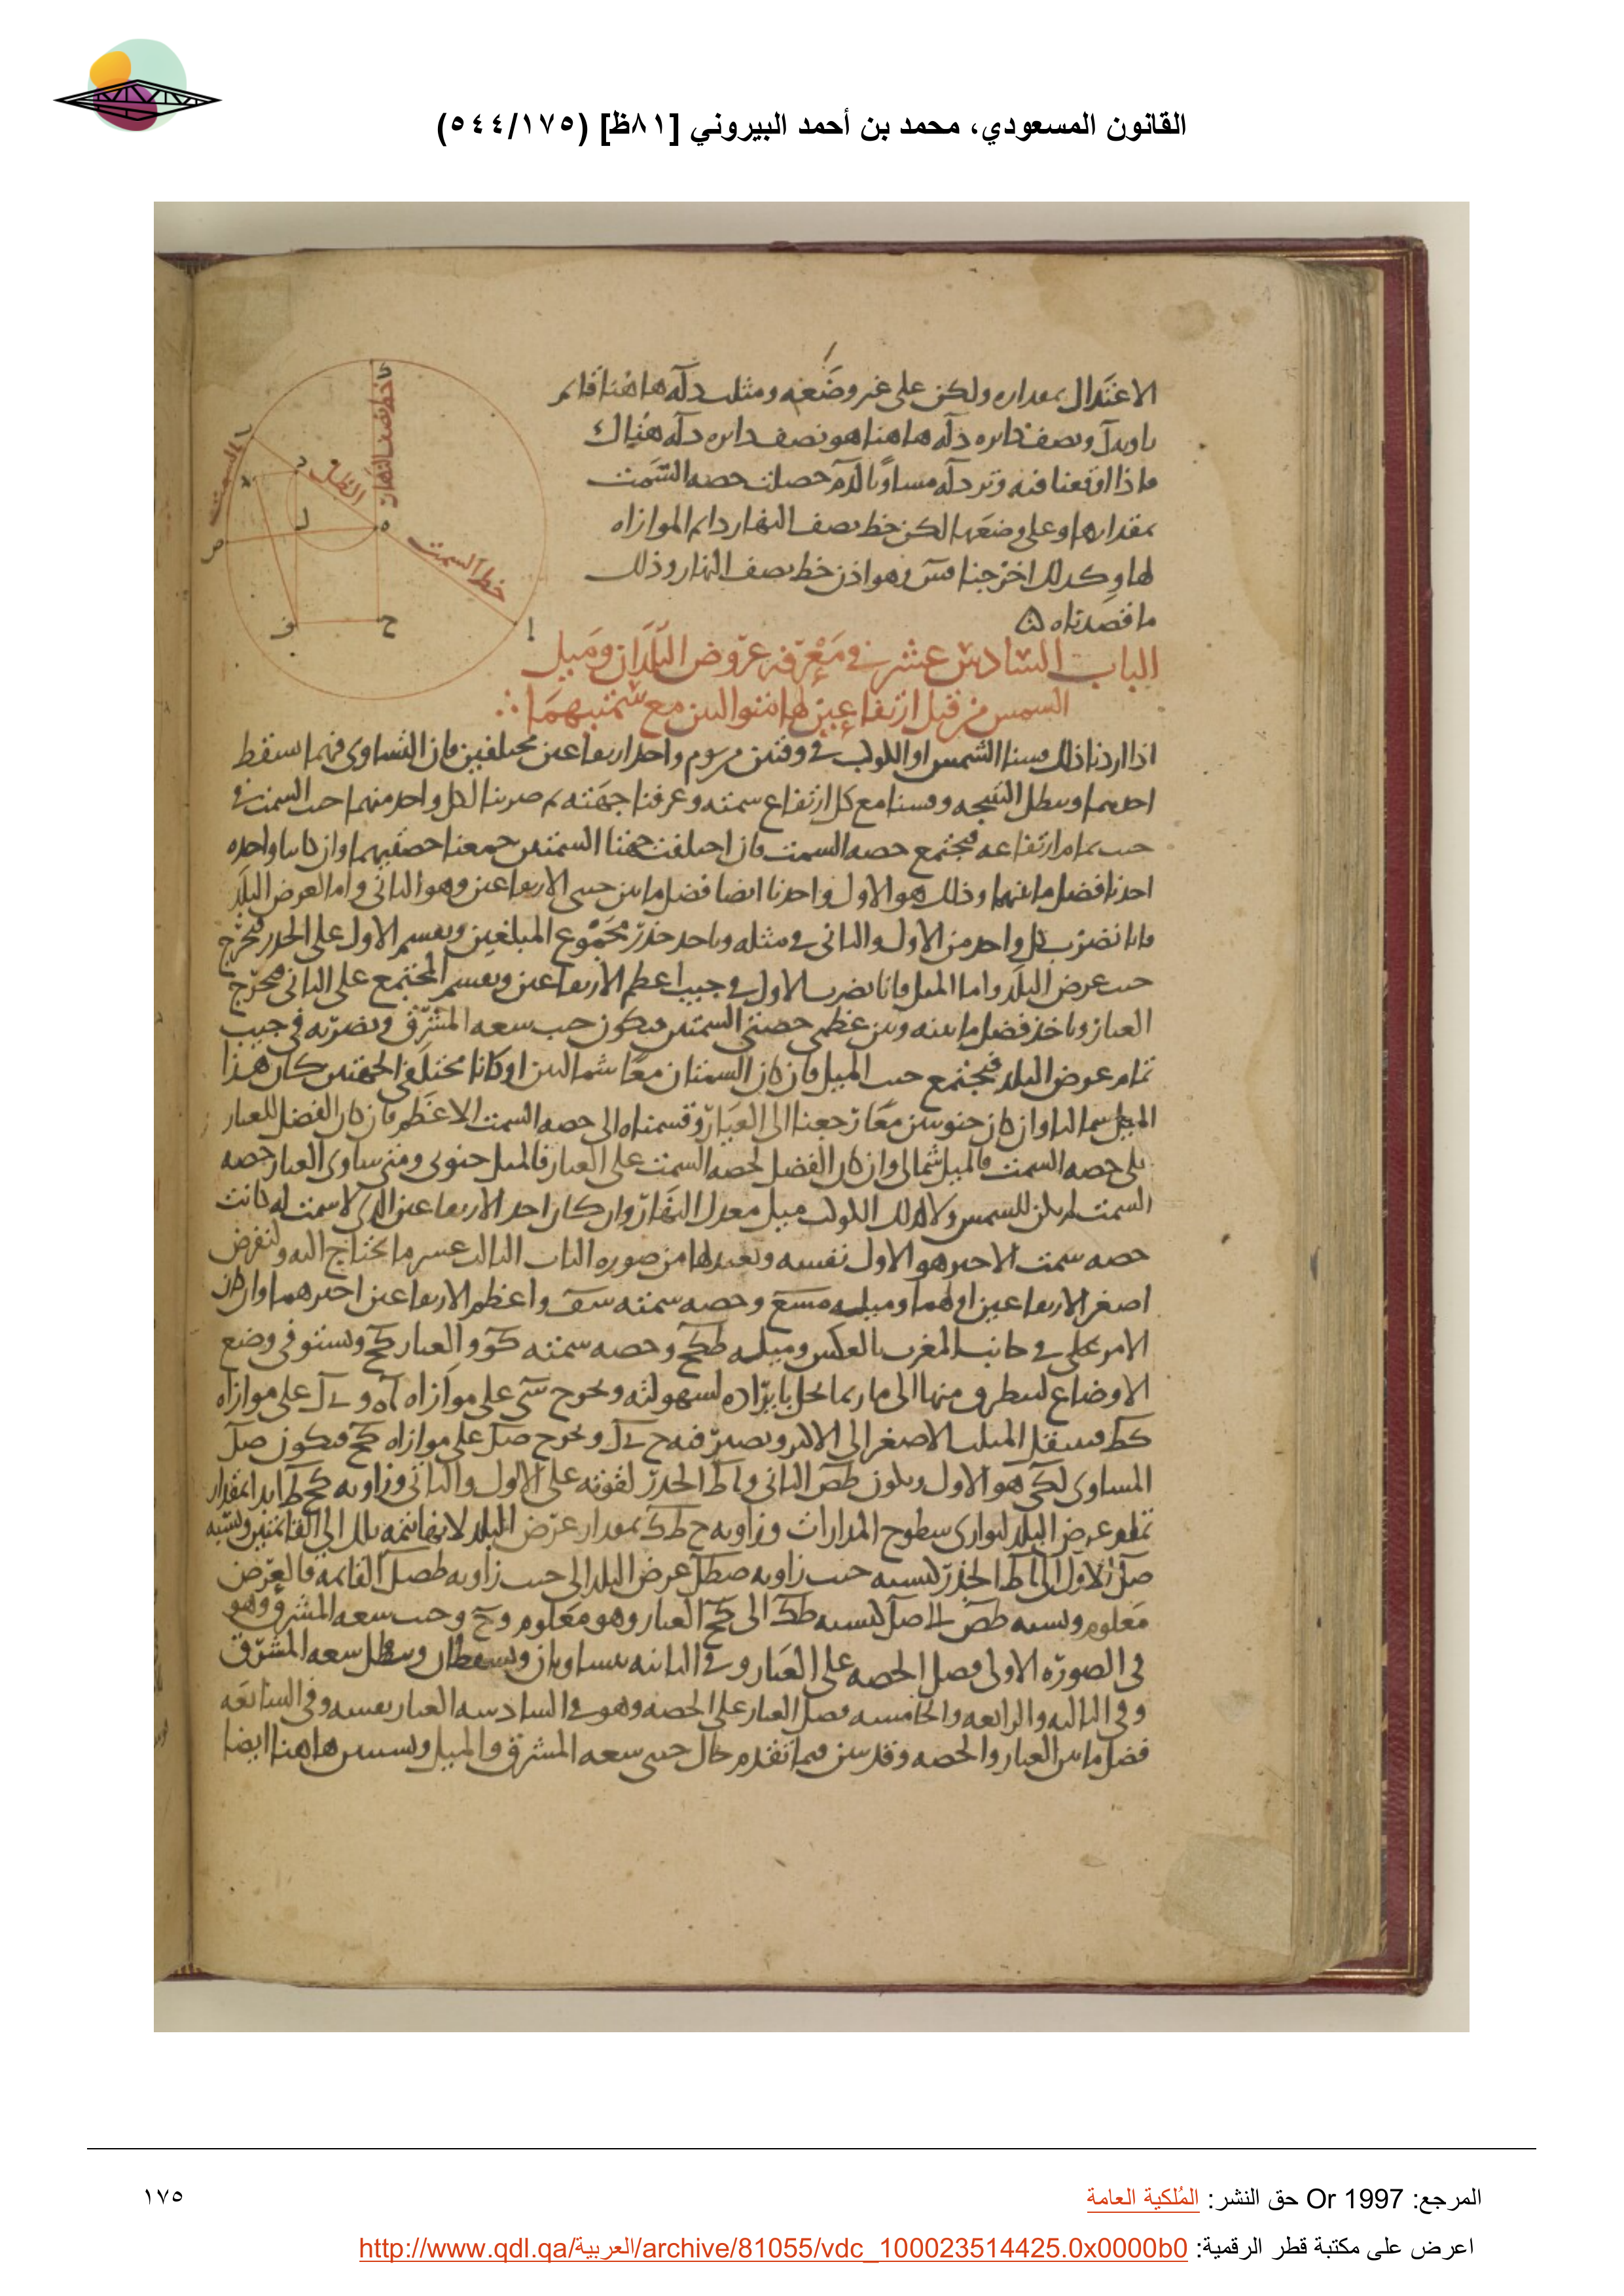 القانون المسعودي، محمد بن أحمد البيروني [٨١ظ] (٥٤٤/١٧٥)
الاعتدال بمداره ولكن على غير وضعه ومثلث دله هاهنا قائم
ونصف دايره دله هاهنا هو نصف دايره دله هناك
فاذا اوقعنا فيه وتر دله مساويا لدم حصلت حصه السمت
بمقدارها وعلى وضعها لكن خط نصف النهار دايم الموازاه
لها وكذلك اخرجنا فهو اذن خط نصف النهار وذلك
ما قصدناه
خط نصف النهار
الظل
السمت
خط السمت
الباب السادس عشر في معرفه عروض البلدان وميل
الشمس من قبل ارتفاعين لها متواليين مع سمتيهما
اذا اردنا ذلك قسنا الشمس او الكوكب في وقتين من يوم واحد ارتفاعين مختلفين فان التساوى فيهما يسقط
احدهما ويبطل النتيجه وقسنا مع كل ارتفاع سمته وعرفنا جهته ثم ضربنا لكل واحد منهما جيب السمت في
جيب تمام ارتفاعه فيجتمع حصه السمت فان اختلفت جهتا السمتين جمعنا حصتيهما وان كانت واحده
اخذنا فضل ما بينهما وذلك هو الاول واخذنا ايضا فضل ما بين جيبى الارتفاعين وهو الثانى واما لعرض البلد
فانا نضرب كل واحد من الاول والثانى في مثله وناخذ جذر مجموع المبلغين ونقسم الاول على الجذر فيخرج
جيب عرض البلد واما الميل فانا نضرب الاول في جيب اعظم الارتفاعين ونقسم المجتمع على الثانى فيخرج
العيار وناخذ فضل ما بينه وبين عظمى حصتى السمتين فيكون جيب سعه المشرق ونضربه في جيب
تمام عرض البلد فيجتمع جيب الميل فان كان السمتان معا شماليين او كانا مختلفى الجهتين كان هذا
الميل شماليا وان كان جنوبيين معا رجعنا الى العيار وقسناه الى حصه السمت الاعظم فان كان الفضل للعيار
على حصه السمت فالميل شمالى وان كان الفضل لحصه السمت على العيار فالميل جنوبى ومتى ساوى العيار حصه
السمت لم يكن للشمس ولا لذلك الكوكب ميل معدل النهار وان كان احد الارتفاعين الذى لا سمت له كانت
حصه سمت الاخير هو الاول نفسه ونعيد لها من صوره الباب الثالث عشر ما يحتاج اليه ولنفرض
اصغر الارتفاعين اولهما وحصه سمته واعظم الارتفاعين اخيرهما وان كان
الامر على في جانب المغرب بالعكس وحصه سمته والعيار كح ونستوفى وضع
الاوضاع لنتطرق منها الى ما ربما نخل بايراده لسهولته ونخرج على موازاه على موازاه
كط فينتقل المثلث الاصغر الى الاكبر ويصير فيه ونخرج صل على موازاه كح فيكون صل
المساوى هو الاول ويكون طص الثانى الجذر لقوته على الاول والثانى وزاويه كح ط ابدا بمقدار
تمام عرض البلد لتوازى سطوح المدارات وزاويه ح ط ك بمقدار عرض البلد لانها تتمه تلك الى القائمتين ونسبه
صل الاول الى الجذر كنسبه جيب زاويه صطل عرض البلد الى جيب زاويه طصل القائمه فالعرض
معلوم ونسبه طص الى صل كنسبه طك الى كح العيار وهو معلوم وجيب سعه المشرق وهو
في الصوره الاولى فضل الحصه على العيار وفي الثانيه يتساويان ويسقطان وتبطل سعه المشرق
وفي الثالثه والرابعه والخامسه فضل العيار على الحصه وهو في السادسه العيار نفسه وفي السابعه
فضل ما بين العيار والحصه وقد تبين فيما تقدم حال جيبى سعه المشرق والميل هاهنا ايضا
المرجع: Or 1997 حق النشر: المُلكية العامة
١٧٥
اعرض على مكتبة قطر الرقمية: http://www.qdl.qa/العربية/archive/81055/vdc_100023514425.0x0000b0